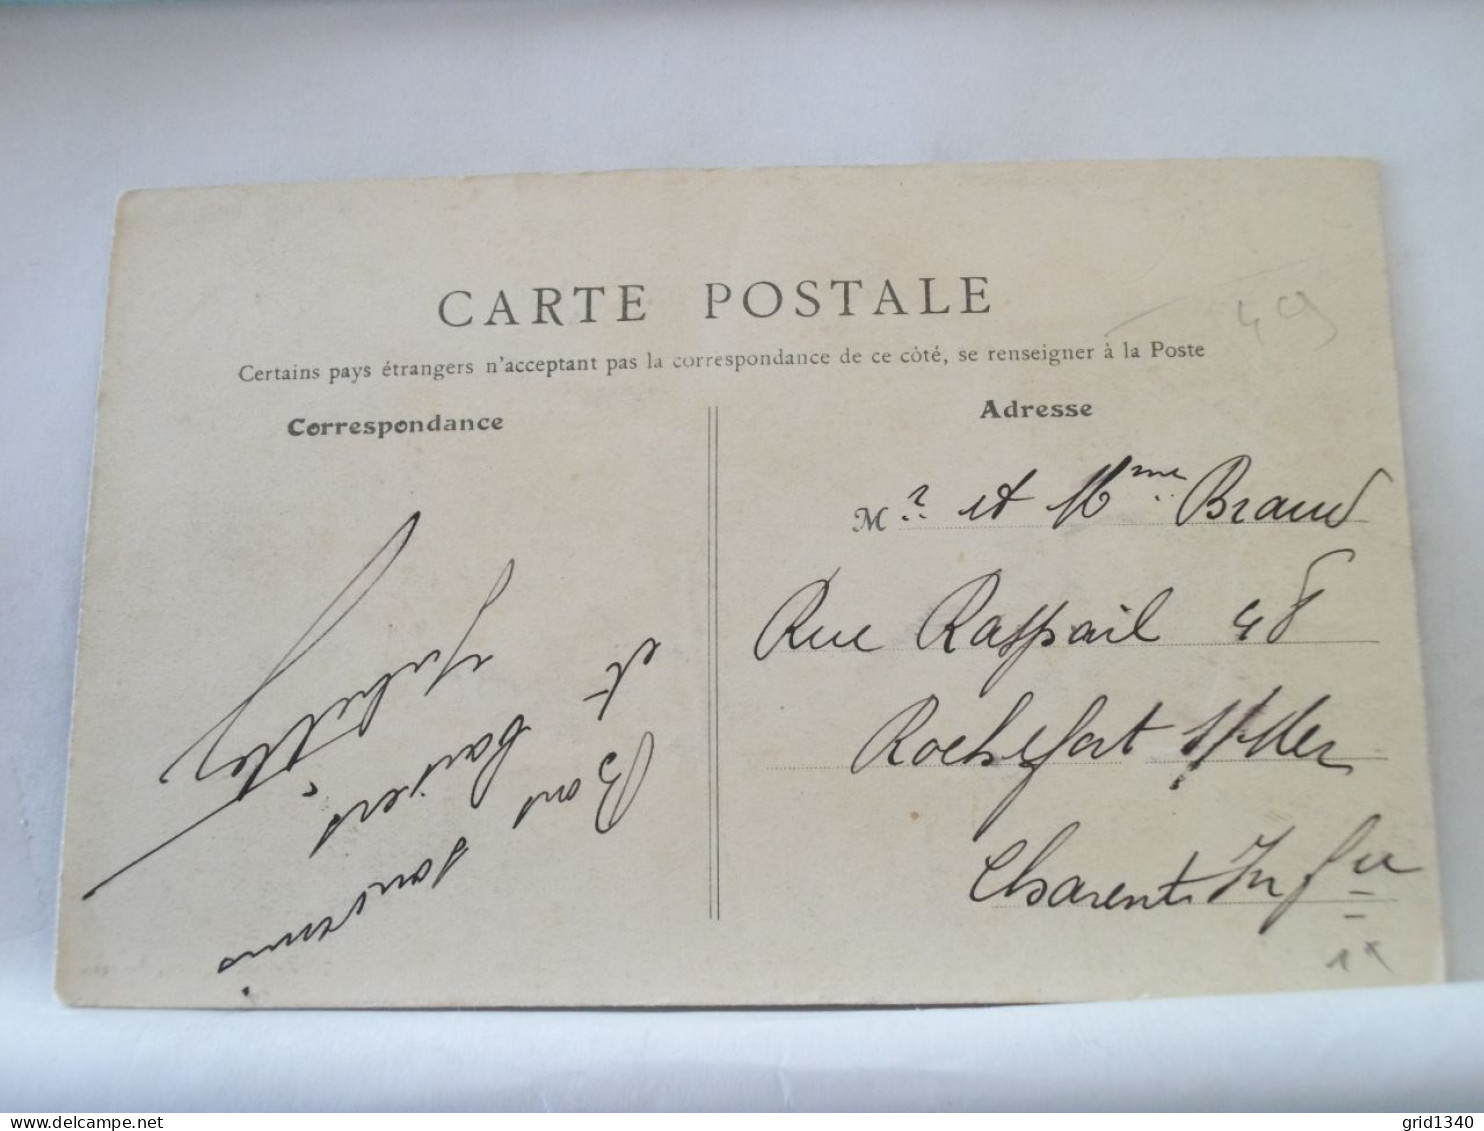 CARTE POSTALE
Certains pays étrangers n'acceptant pas la correspondance de ce côté, se renseigner à la Poste
Correspondance
Adresse
49
Bon souvenir
et baisers
Juliette
Mr et Mme Braud
Rue Raspail 48
Rochefort s/Mer
Charente Infre
delcampe.net
grid1340